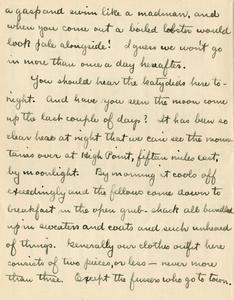 a gasp and swim like a madman, and
when you come out a boiled lobster would
look pale alongside! I guess we won't go
in more than once a day hereafter.
You should hear the katydids here to-
night. And have you seen the moon come
up the last couple of days? It has been so
clear here at night that we can see the moun-
tains over at High Point, fifteen miles east,
by moonlight. By morning it cools off
exceedingly and the fellows come down to
breakfast in the open grub-shack all bundled
up in sweaters and coats and such unheard
of things. Generally our clothes outfit here
consists of two pieces, or less — never more
than three. Except the fussers who go to town.